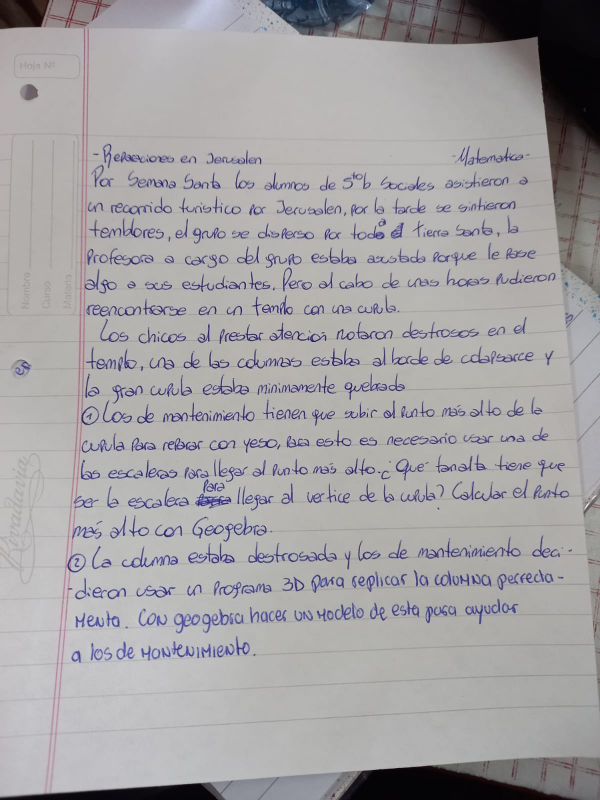 Hoja Nº
Nombre
Curso
Materia
Rivadavia
- Reparaciones en Jerusalen
- Matematica -
Por Semana Santa los alumnos de 5to b Sociales asistieron a
un recorrido turistico por Jerusalen, por la tarde se sintieron
temblores, el grupo se disperso por toda tierra santa, la
profesora a cargo del grupo estaba asustada porque le pase
algo a sus estudiantes. Pero al cabo de unas horas pudieron
reencontrarse en un templo con una cupula.
Los chicos al prestar atencion notaron destrosos en el
templo, una de las columnas estaba al borde de colapsarce y
la gran cupula estaba minimamente quebrada
① Los de mantenimiento tienen que subir al punto más alto de la
cupula para reparar con yeso, para esto es necesario usar una de
las escaleras para llegar al punto más alto. ¿Que tan alta tiene que
ser la escalera para llegar al vertice de la cupula? Calcular el punto
más alto con Geogebra.
② La columna estaba destrosada y los de mantenimiento deci-
-dieron usar un programa 3D para replicar la columna perfecta-
mente. Con geogebra hacer un modelo de esta para ayudar
a los de mantenimiento.